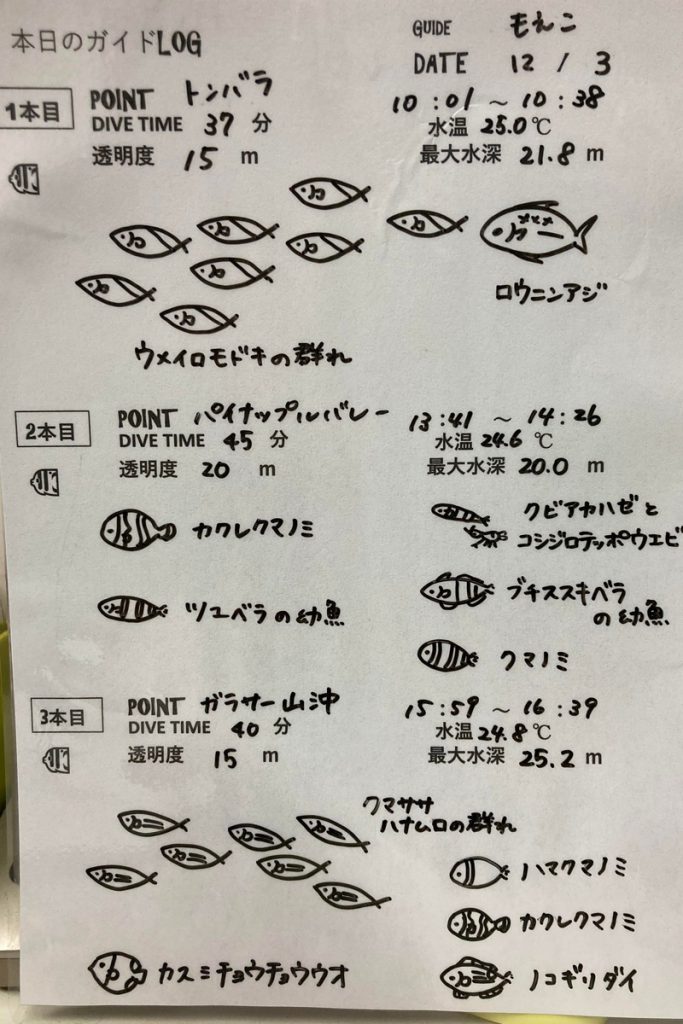 本日のガイドLOG
GUIDE もえこ
DATE 12 / 3
1本目
POINT トンバラ 10:01 ~ 10:38
DIVE TIME 37 分 水温 25.0℃
透明度 15 m 最大水深 21.8 m
ロウニンアジ
ウメイロモドキの群れ
2本目
POINT パイナップルバレー 13:41 ~ 14:26
DIVE TIME 45 分 水温 24.6 ℃
透明度 20 m 最大水深 20.0 m
カクレクマノミ
クビアカハゼと
コシジロテッポウエビ
ツユベラの幼魚
ブチススキベラ
の幼魚
クマノミ
3本目
POINT ガラサー山沖 15:59 ~ 16:39
DIVE TIME 40 分 水温 24.8 ℃
透明度 15 m 最大水深 25.2 m
クマササ
ハナムロの群れ
ハマクマノミ
カクレクマノミ
カスミチョウチョウウオ
ノコギリダイ